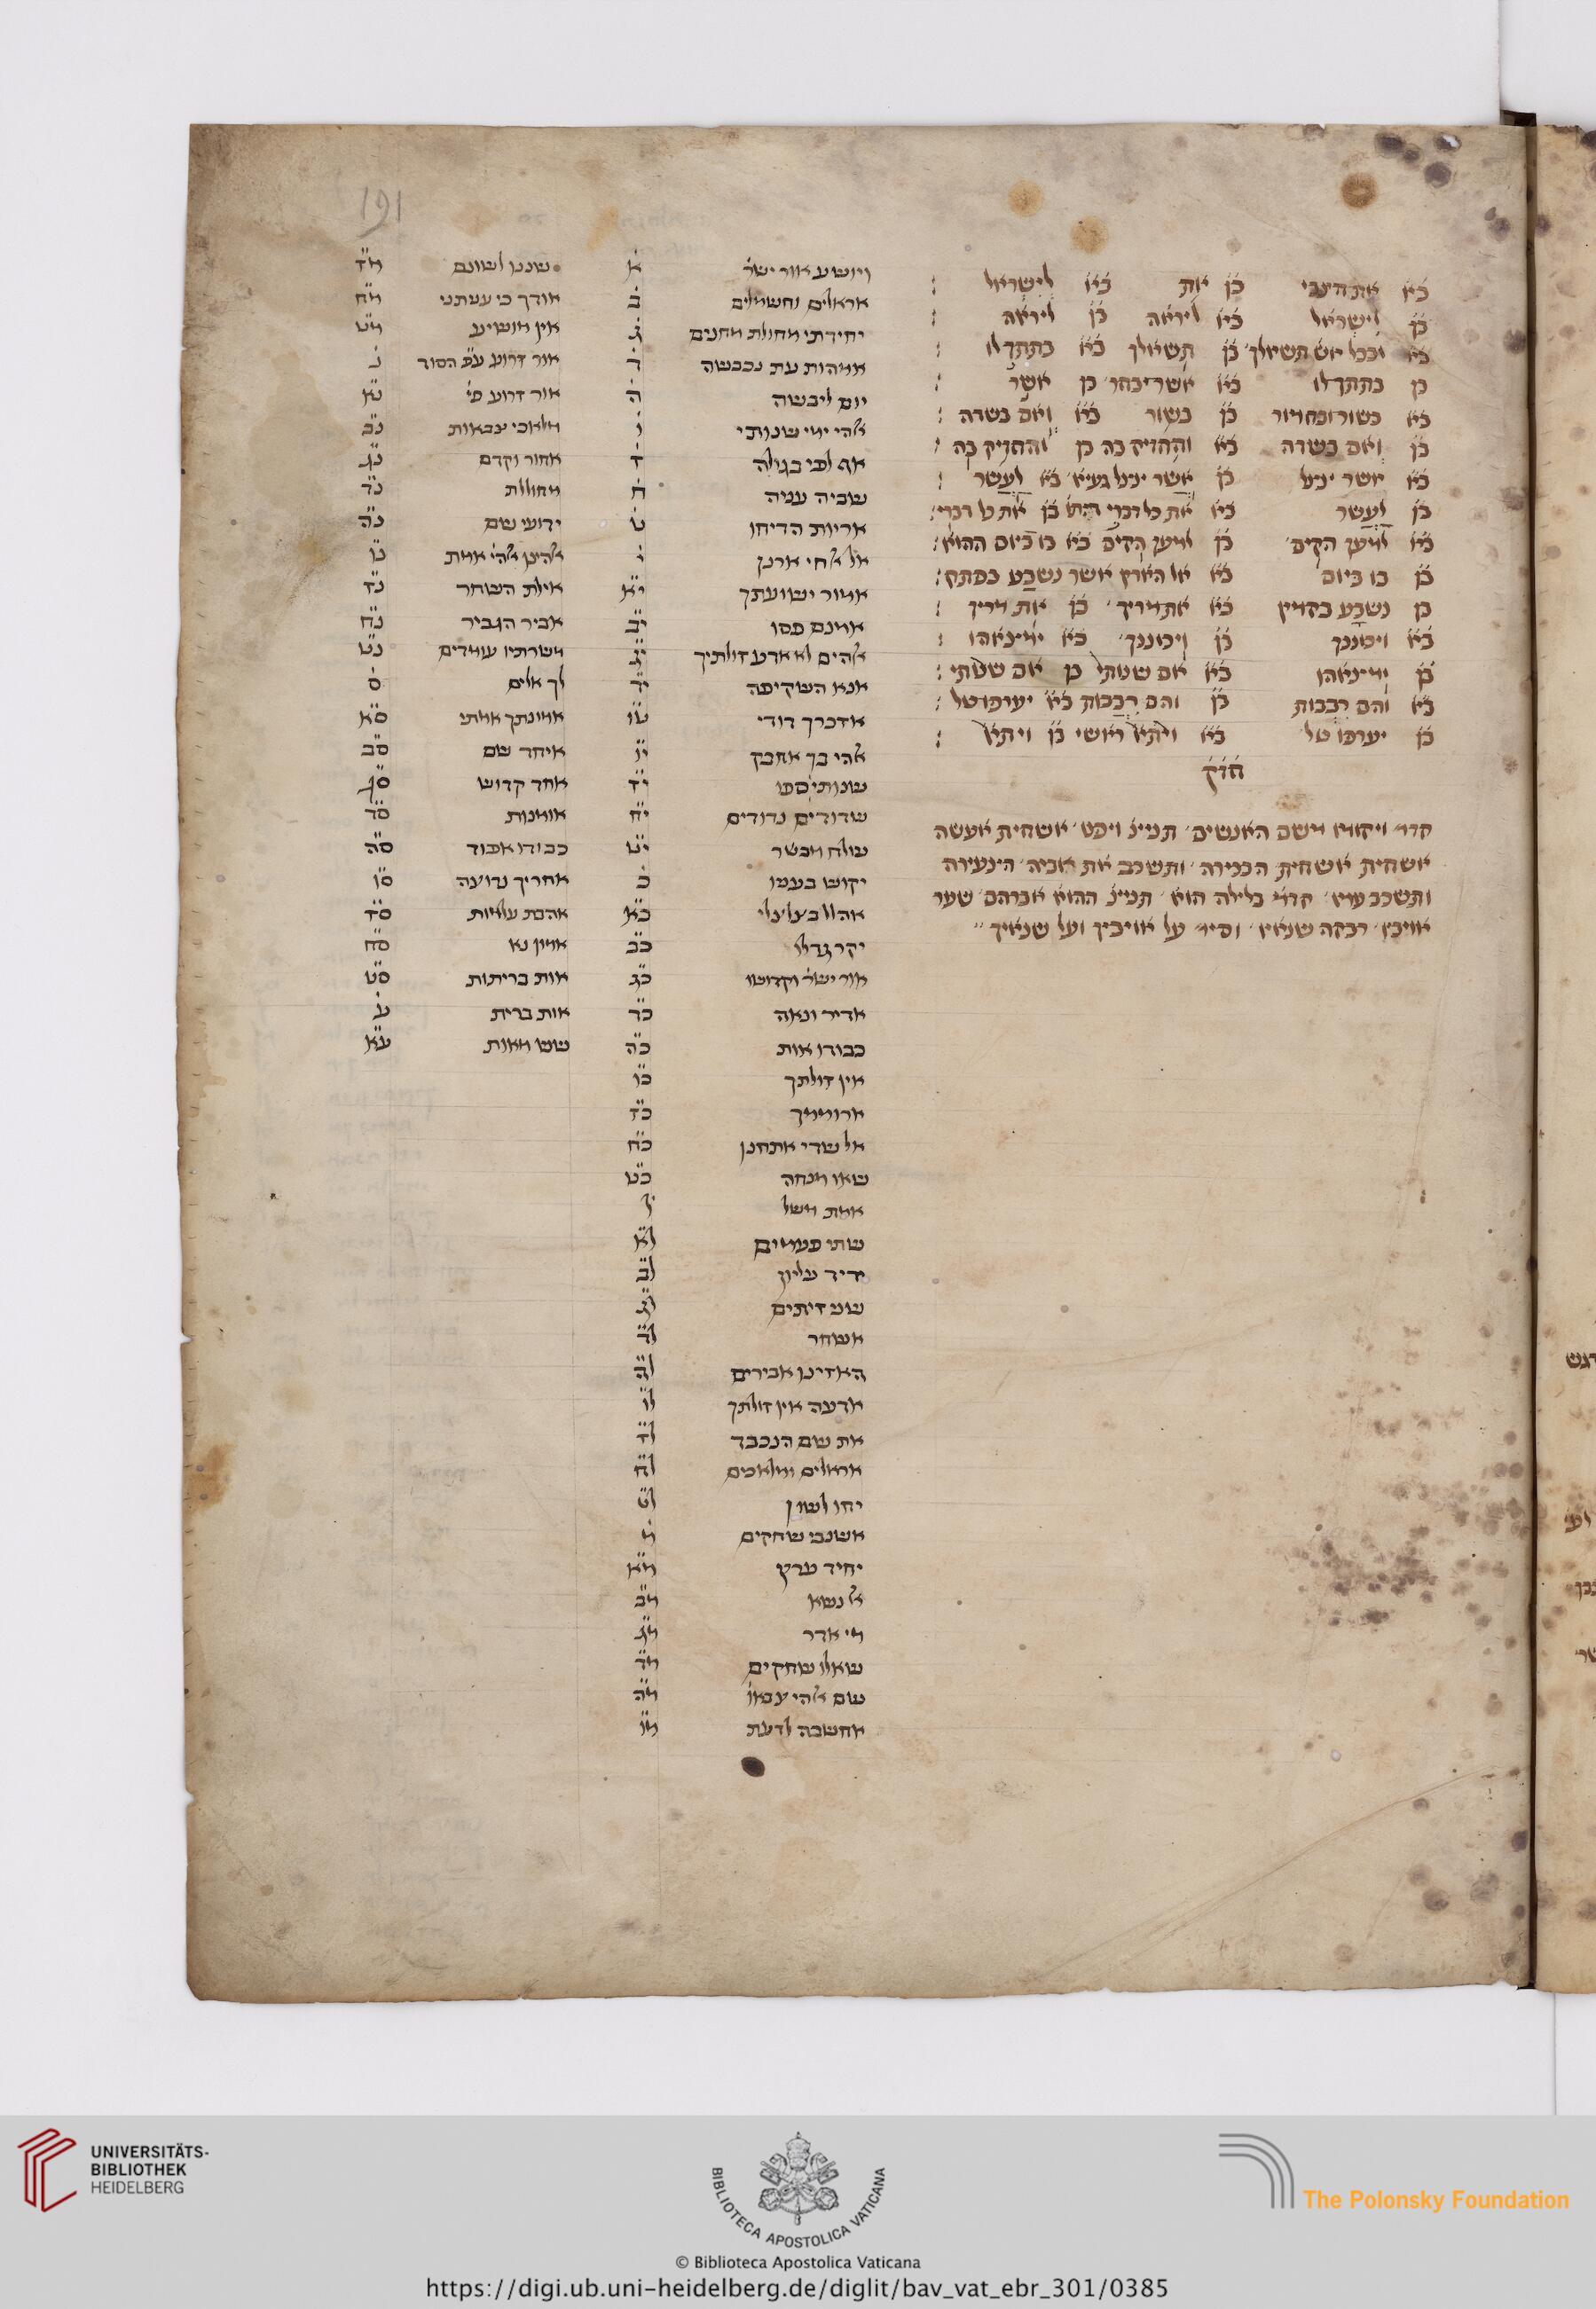 191
בא את הינבי בן את בא לישראל :
בן לישראל בא ליראה בן ליראה :
בא ובכל יאש תשיאלך בן תשאלך בא בתתך לו :
בן בתתך לו בא אשר יבחר בן אשר :
בא כשור ובחמור בן כשור בא ואם בשדה :
בן ואם בשדה בא והחזיק בה בן והחזיק בה
בא אשר יבעל בן אשר יבעל בא לעשר
בן לעשר בא את כל דברי בן את כל דברי :
בא למען הקים בן למען הקים בא בו ביום ההוא :
בן בו ביום בא אל הארץ אשר נשבע בפתח :
בן נשבע בקמץ בא בן
בא ויכוננך בן ויכוננך בא ימצאהו :
בן ימצאהו בא אם שנותי בן אם שנותי :
בא והם רבבות בן והם רבבות בא יערפו טל
בן יערפו טל בא ויתא ראשי בן ויתא :
חזק
קדמ׳ ויקומו משם האנשים׳ תניינ׳ ויפט׳ אשחית אעשה
אשחית אשחית הבכירה׳ ותשכב את אביה׳ הצעירה
ותשכב עמו׳ קדמ׳ בלילה הוא׳ תניינ׳ ההוא אברהם׳ שער
אויביו׳ רבקה שנאיו׳ וסימ׳ על אויביך ועל שנאיך
ויושע אור ישר׳ א
אראלים וחשמלים ב
יחידתי מחולת מחנים ג
אמהות עת נכבשה ד
יום ליבשה ה
אלהי ימי שנותי ו
אף לפי בגולה ז
שביה עניה ח
אריות הדיחו ט
אל אל חי ארנן י
אמור ישועתך יא
אמנם פסו יב
אלהים לא אדע זולתיך יג
אנא השקיפה יד
אזכרך דודי טו
אלהי בך אחבק יו
שנותי ספו יז
שדודים נדודים יח
שלח מבשר יט
יקוש בעניו כ
אהללה בצלצלי כא
יקר גדלו כב
אור ישר׳ וקדושו כג
אדיר ונאה כד
כבודו אות כה
אין זולתך כו
ארוממך כז
אל שדי אתחנן כח
שאו מנחה כט
אמת משל ל
שתי פעמים לא
ידיד עליון לב
שני זיתים לג
אשחר לד
האזינו אבירים לה
אדעה אין זולתך לו
את שם הנכבד לז
אראלים ומלאכים לח
יחו לשון לט
אשנבי שחקים מ
יחיד ערץ מא
אל נשא מב
מי אדר מג
שאלו שחקים מד
שם אלהי צבאו׳ מה
אחשבה לדעת מו
שננו לשונם מז
אודך כי עניתני מח
אין מושיע מט
אור זרוע ע״פ הסוד נ
אור זרוע נא
מלאכי צבאות נב
אחור וקדם נג
מחוללת נד
ידועי שם נה
אלהינו אלהים אמת נו
אילת השחר נז
אביר הגביר נח
משרתיו עומדים נט
לך אלים ס
אמונתך אמתי סא
איחד שם סב
אחד קדוש סג
אומנות סד
כבודו אכוד סה
אחריך נרועה סו
אהבת עלמות סז
אמון נא סח
אות בריתות סט
אות ברית ע
שש מאות עא
UNIVERSITÄTS-
BIBLIOTHEK
HEIDELBERG
BIBLIOTECA APOSTOLICA VATICANA
The Polonsky Foundation
© Biblioteca Apostolica Vaticana
https://digi.ub.uni-heidelberg.de/diglit/bav_vat_ebr_301/0385